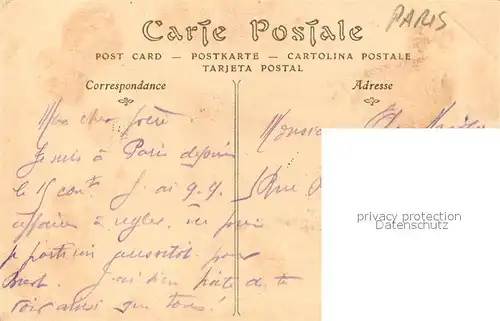 PARIS
Carte Postale
POST CARD — POSTKARTE — CARTOLINA POSTALE
TARJETA POSTAL
Correspondance
Adresse
Mon cher frère.
Je suis à Paris depuis
le 15 cont. J'ai q.q.
affaires à régler,
je partirai aussitôt pour
Brest. J'ai bien hâte de te
voir ainsi que tous!
Monsieur
Rue
privacy protection
Datenschutz